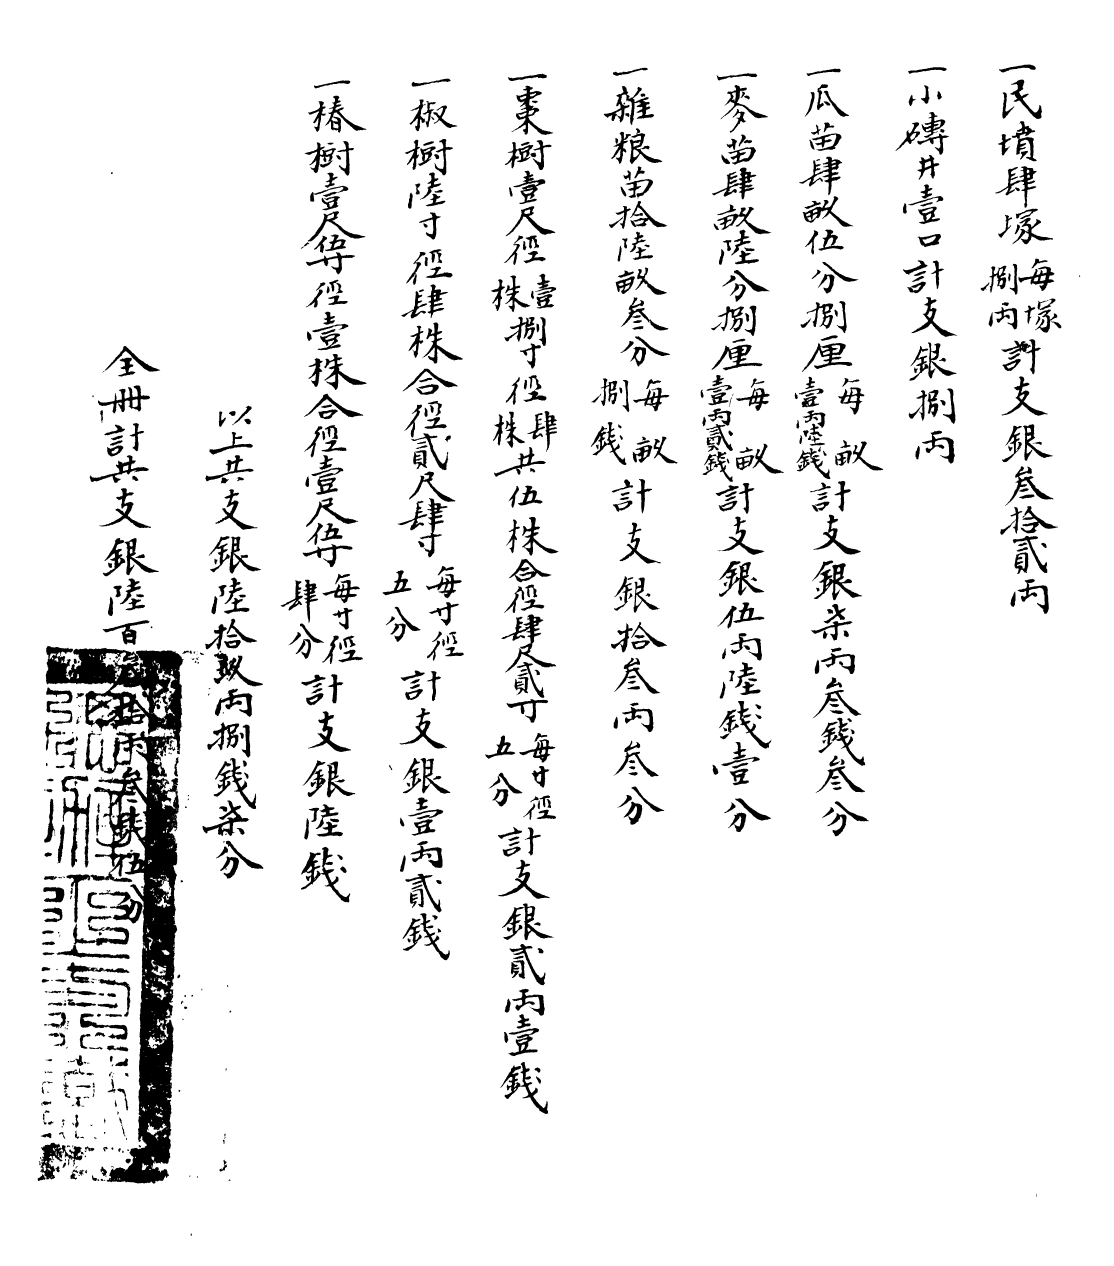 一民墳肆塚每塚捌両計支銀叁拾貳両
一小磚井壹口計支銀捌両
一瓜苗肆畝伍分捌厘每畝壹両陸錢計支銀柒両叁錢叁分
一麥苗肆畝陸分捌厘每畝壹両貳錢計支銀伍両陸錢壹分
一雜粮苗拾陸畝叁分每畝捌錢計支銀拾叁両叁分
一棗樹壹尺徑壹株捌寸徑肆株共伍株合徑肆尺貳寸每寸徑五分計支銀貳両壹錢
一椒樹陸寸徑肆株合徑貳尺肆寸每寸徑五分計支銀壹両貳錢
一椿樹壹尺伍寸徑壹株合徑壹尺伍寸每寸徑肆分計支銀陸錢
以上共支銀陸拾玖両捌錢柒分
全冊計共支銀陸百拾両叁錢伍分